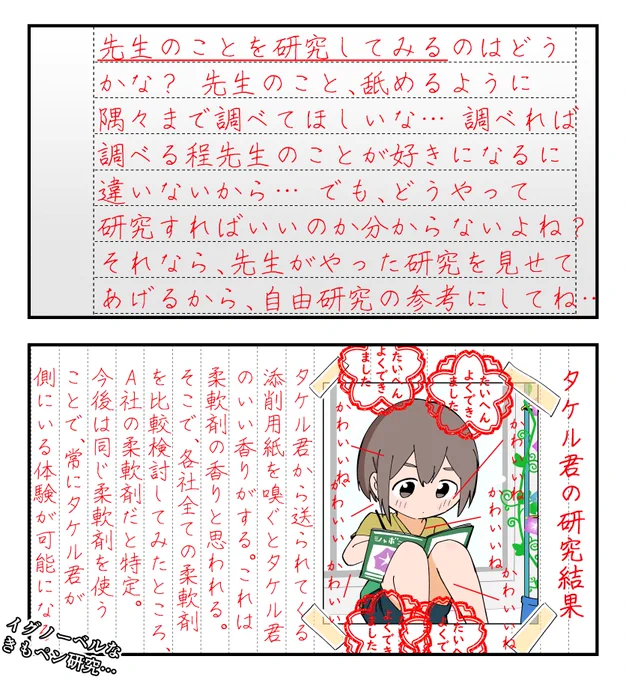 先生のことを研究してみるのはどう
かな？ 先生のこと、舐めるように
隅々まで調べてほしいな… 調べれば
調べる程先生のことが好きになるに
違いないから… でも、どうやって
研究すればいいのか分からないよね？
それなら、先生がやった研究を見せて
あげるから、自由研究の参考にしてね…
タケル君の研究結果
たいへん
よくでき
ました
たいへん
よくでき
ました
かわいいね
かわいいね
かわいい
かわいいね
かわいいね
かわいい
ジャポ
たいへん
よくでき
ました
たいへん
よくでき
タケル君から送られてくる
添削用紙を嗅ぐとタケル君
のいい香りがする。これは
柔軟剤の香りと思われる。
そこで、各社全ての柔軟剤
を比較検討してみたところ、
A社の柔軟剤だと特定。
今後は同じ柔軟剤を使う
ことで、常にタケル君が
側にいる体験が可能にな
イグノーベルな
きもペン研究…